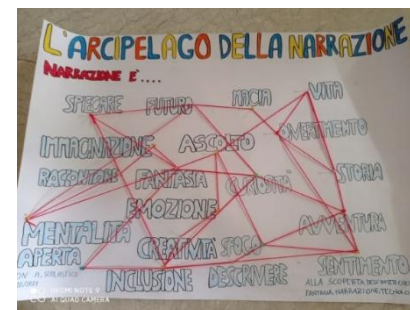 L'ARCIPELAGO DELLA NARRAZIONE
NARRAZIONE E'....
SPIEGARE FUTURO MAGIA VITA
IMMAGINAZIONE ASCOLTO DIVERTIMENTO
RACCONTARE FANTASIA CURIOSITÀ STORIA
EMOZIONE
MENTALITÀ APERTA CREATIVITÀ SFOGO AVVENTURA
INCLUSIONE DESCRIVERE SENTIMENTO
ALLA SCOPERTA
FANTASIA, NARRAZIONE,
REDMI NOTE 9
AI QUAD CAMERA